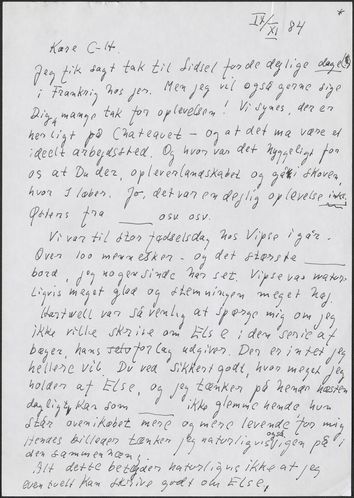 IV/XI 84
*
Kære C-H.
Jeg fik sagt tak til Sidsel for de dejlige dage
i Frankrig hos jer. Men jeg vil også gerne sige
Dig mange tak for oplevelsen! Vi synes, der er
herligt på Chateauet – og at det må være et
ideelt arbejdssted. Og hvor var det hyggeligt for
os at Du der, oplever landskabet og gå i skoven,
hvor I løber. Jo, det var en dejlig oplevelse
fra ____ osv osv.
Vi var til stor fødselsdag hos Vipse i går.
Over 100 mennesker – og det største ____
bord, jeg nogensinde har set. Vipse var natur-
ligvis meget glad og stemningen meget høj.
Hartwell var så venlig at spørge mig om jeg
ikke ville skrive om Else i den serie af
bøger, hans forlag udgiver. Der er intet jeg
hellere vil. Du ved sikkert godt, hvor meget jeg
holder af Else, og jeg tænker på hende næsten
dagligt, kan som ____ ikke glemme hende hun
står ovenikøbet mere og mere levende for mig
Hendes billeder tænker jeg naturligvis også igen på i
den sammenhæng.
Alt dette betyder naturligvis ikke at jeg
eventuelt kan skrive godt om Else,